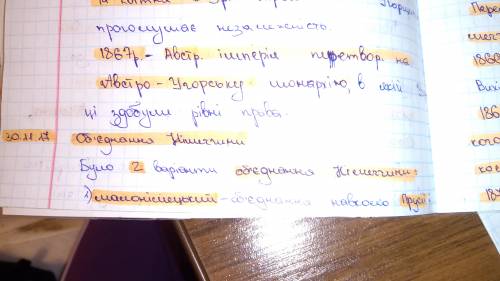 проголошує незалежність.
1867р. - Австр. імперія перетвор. на
Австро-Угорську монархію, в якій
ці здобули рівні права.
30.11.17 Об'єднання Німеччини
Було 2 варіанти об'єднання Німеччини:
1) малонімецький - об'єднання навколо Прусії